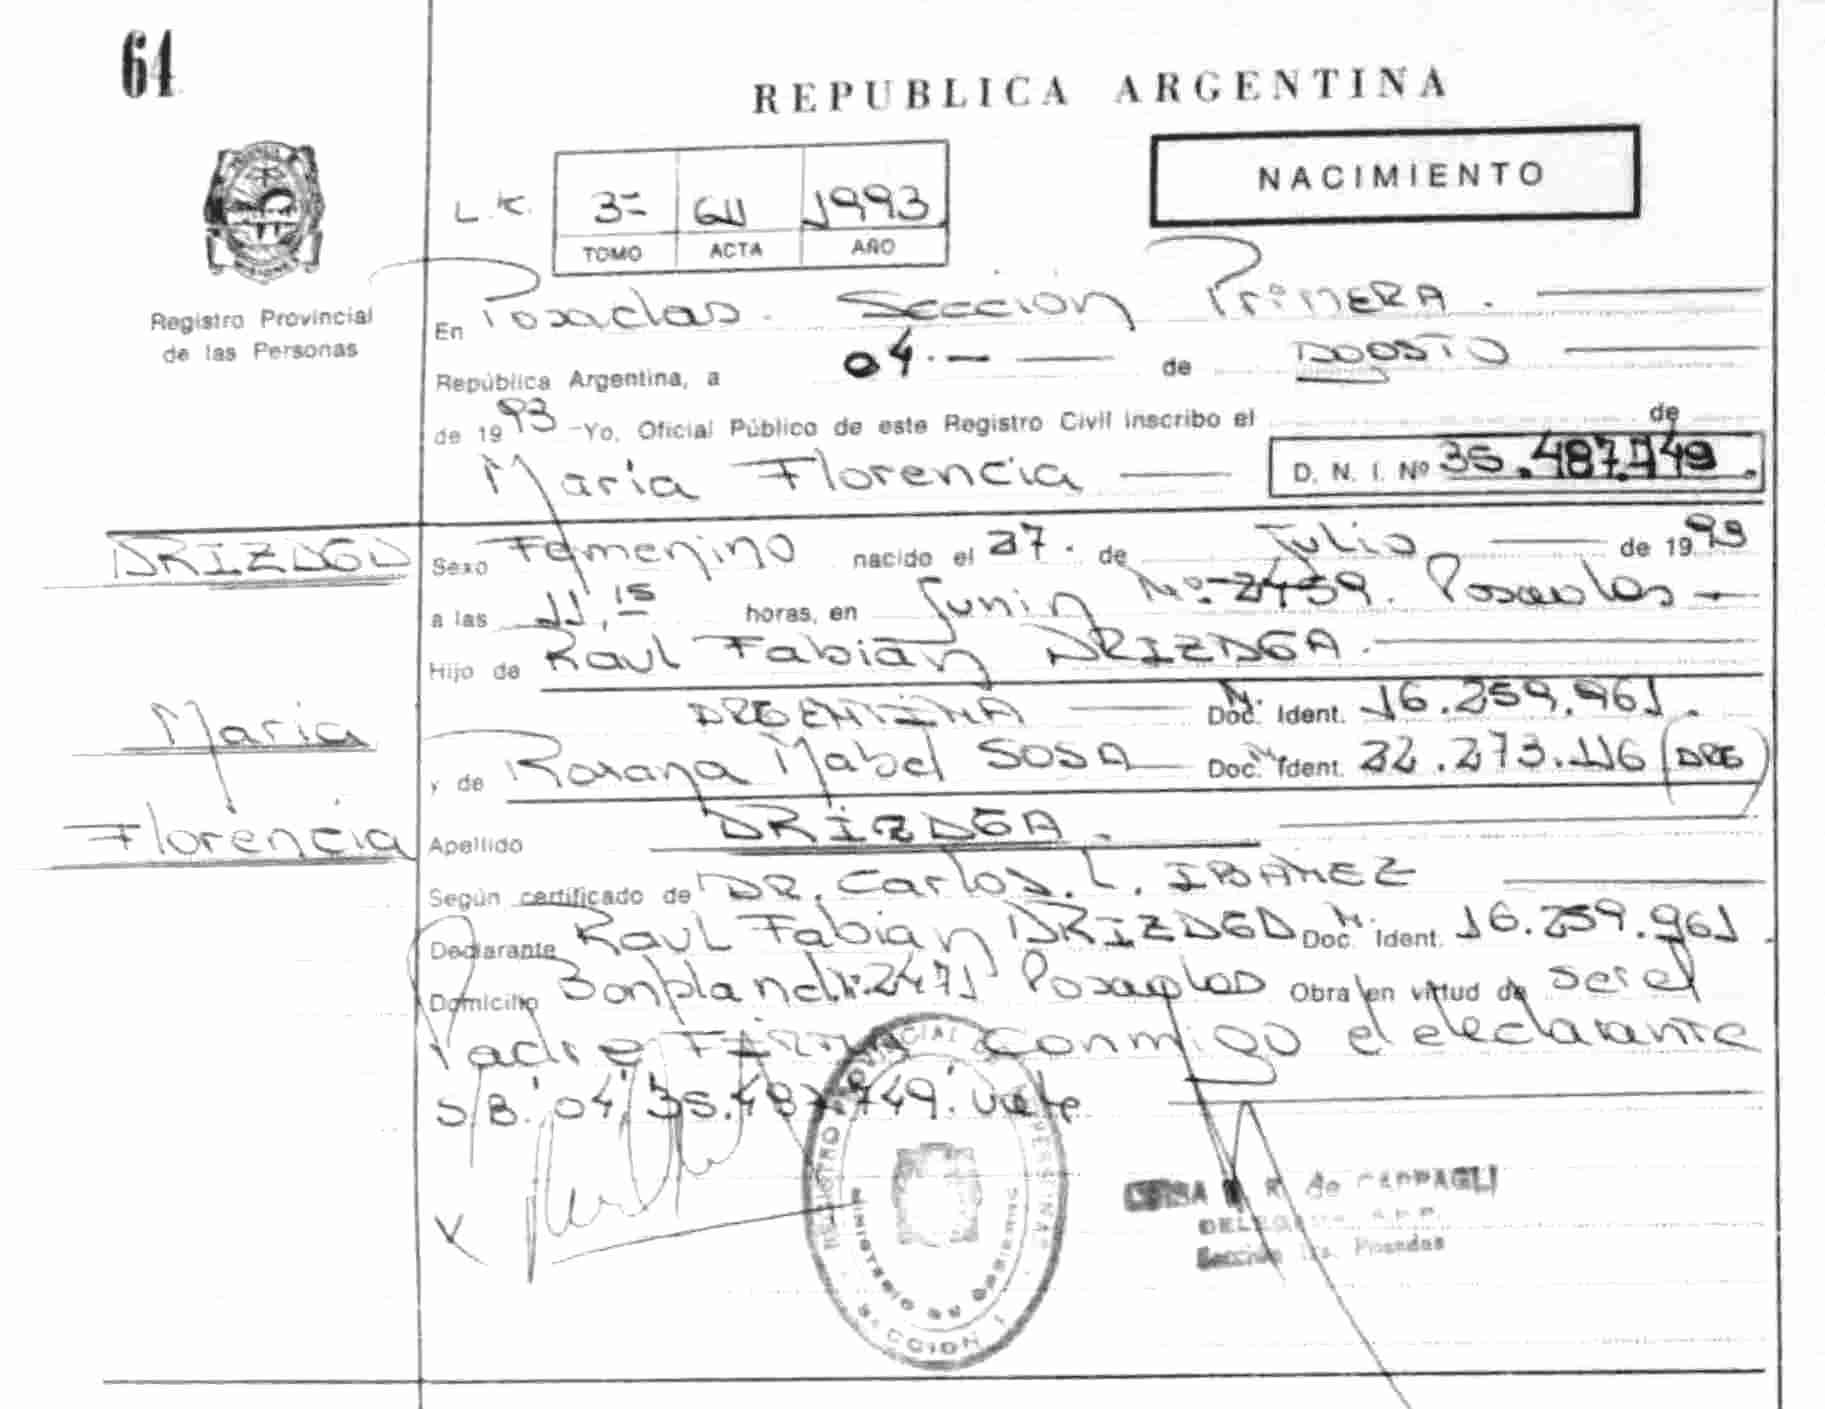 64
REPUBLICA ARGENTINA
NACIMIENTO
L.K. 3= 611 1993
TOMO ACTA AÑO
Registro Provincial
de las Personas
En Posadas. Sección Primera.
República Argentina, a 04.- de AGOSTO
de 1993 -Yo, Oficial Público de este Registro Civil inscribo el de
María Florencia D. N. I. Nº 35.487.749.
ARIZAGA
Sexo Femenino nacido el 27. de Julio de 1993
a las 11,15 horas, en Junin Nº 2459. Posadas
Hijo de Raul Fabián ARIZAGA.
ARGENTINA Doc. Ident. 16.259.961.
María
y de Rosana Mabel SOSA Doc. Ident. 22.273.116 (ARG)
Florencia
Apellido ARIZAGA.
Según certificado de DR. Carlos. L. IBAÑEZ
Declarante Raul Fabian ARIZAGA Doc. Ident. 16.259.961.
Domicilio Bonpland Nº 2471 Posadas Obra en virtud de ser el
Padre FIRMA Conmigo el declarante
S/B. 04/35.487.749. Vale
REGISTRO PROVINCIAL DE LAS PERSONAS
MINISTERIO DE GOBIERNO
SECCION 1
R. de
DELEGADA
Sección 1ra. Posadas